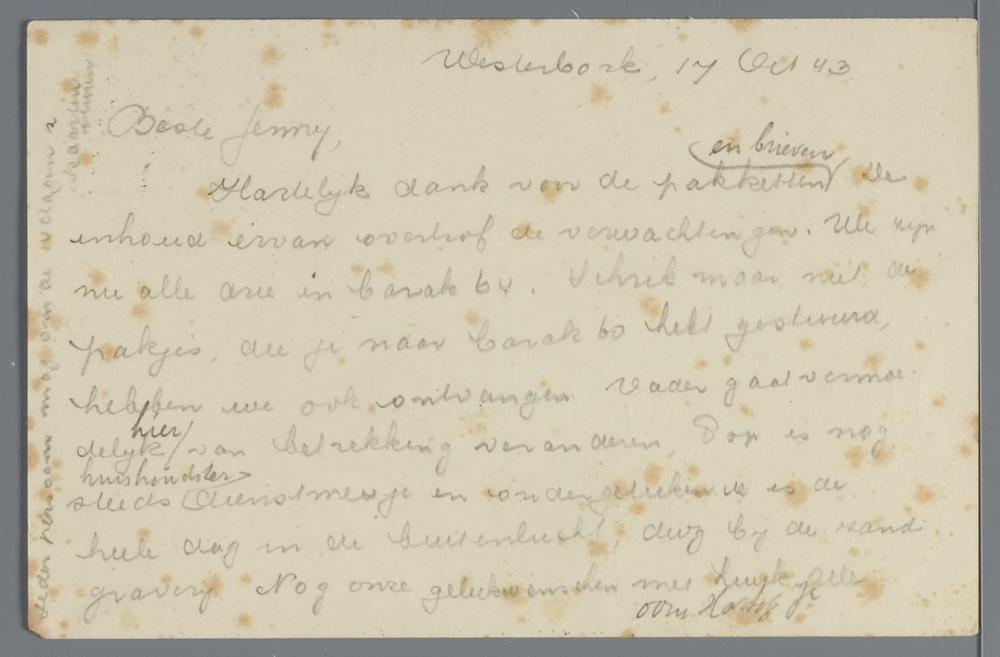 Westerbork, 17 Oct 43
Beste Jenny,
en brieven
Hartelijk dank voor de pakketten De
inhoud ervan overtrof de verwachtingen. We zijn
nu alle drie in barak 64. Schrik maar niet de
pakjes, die je naar barak 60 hebt gestuurd,
hebben we ook ontvangen. Vader gaat vermoe-
hier
delijk van betrekking veranderen, Pop is nog
huishoudster
steeds dienstmeisje en ondergetekende is de
hele dag in de buitenlucht, dwz bij de zand
graverij Nog onze gelukwenschen met
oom
Ieder persoon mag om de 14 dagen 2
kaarten